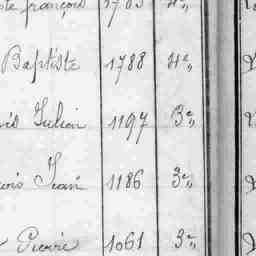 te françois 1783 4e,,
Baptiste 1788 4e,,
Julien 1197 3e,,
Jean 1186 3e,,
Pierre 1061 3e,,